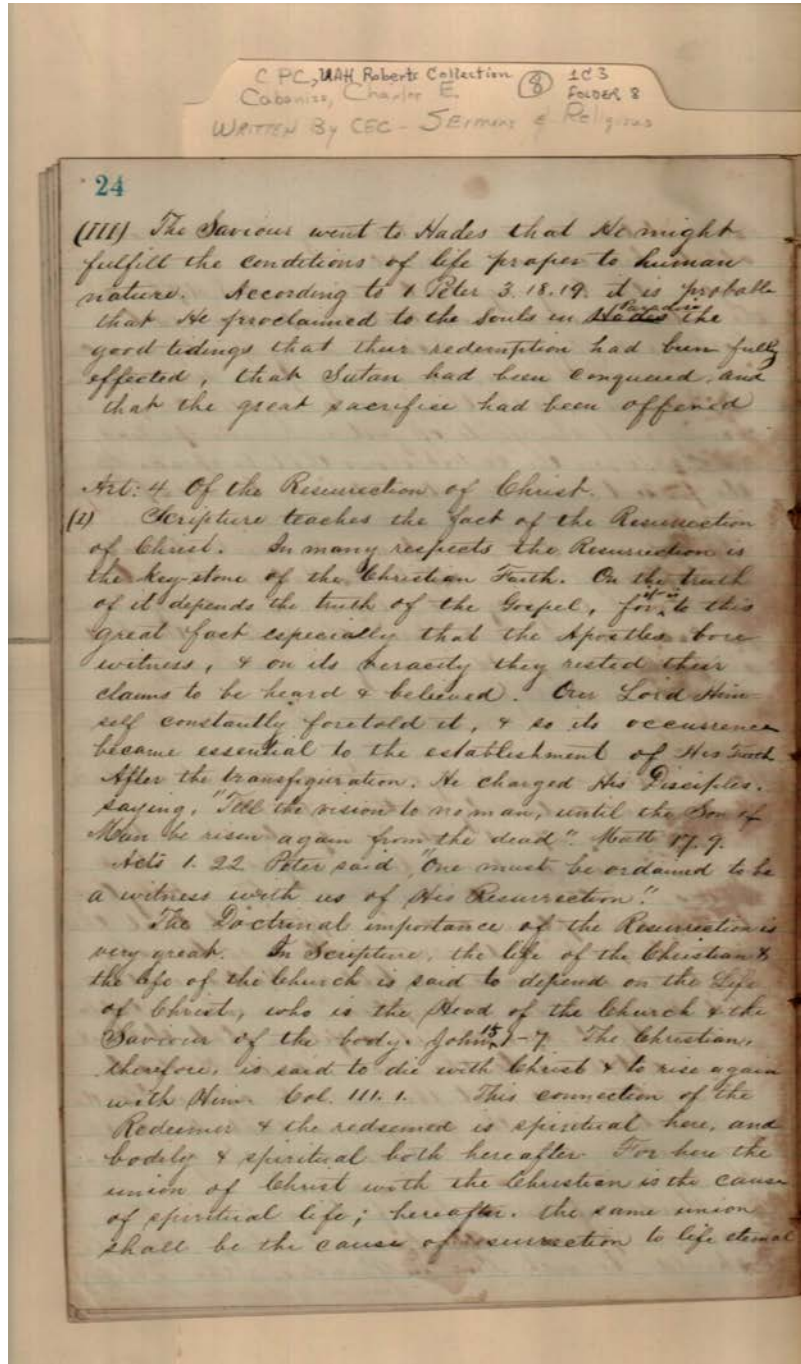 C PC, UAH Roberts Collection (8) 1C3
Cabaniss, Charles E. FOLDER 8
WRITTEN By CEC - SERMONS & Religious
24
(III) The Saviour went to Hades that He might
fulfill the conditions of life proper to human
nature. According to 1 Peter 3.18.19. it is probable
Paradise
that He proclaimed to the Souls in Hades the
good tidings that their redemption had been fully
effected, that Satan had been conquered, and
that the great sacrifice had been offered
Art: 4 Of the Resurrection of Christ.
(I) Scripture teaches the fact of the Resurrection
of Christ. In many respects the Resurrection is
the key-stone of the Christian Faith. On the truth
of it depends the truth of the Gospel, for it is to this
great fact especially that the Apostles bore
witness, & on its veracity they rested their
claims to be heard & believed. Our Lord Him-
self constantly foretold it, & so its occurrence
became essential to the establishment of His Truth
After the transfiguration. He charged His Disciples.
saying, "Tell the vision to no man, until the Son of
Man be risen again from the dead". Matt 17.9.
Acts 1.22 Peter said "One must be ordained to be
a witness with us of His Resurrection."
The Doctrinal importance of the Resurrection is
very great. In Scripture, the life of the Christian &
the life of the Church is said to depend on the Life
of Christ, who is the Head of the Church & the
Saviour of the body. John 15 1-7 The Christian,
therefore, is said to die with Christ & to rise again
with Him. Col. 111.1. This connection of the
Redeemer & the redeemed is spiritual here, and
bodily & spiritual both hereafter For here the
union of Christ with the Christian is the cause
of spiritual life; hereafter. the same union
shall be the cause of resurrection to life eternal